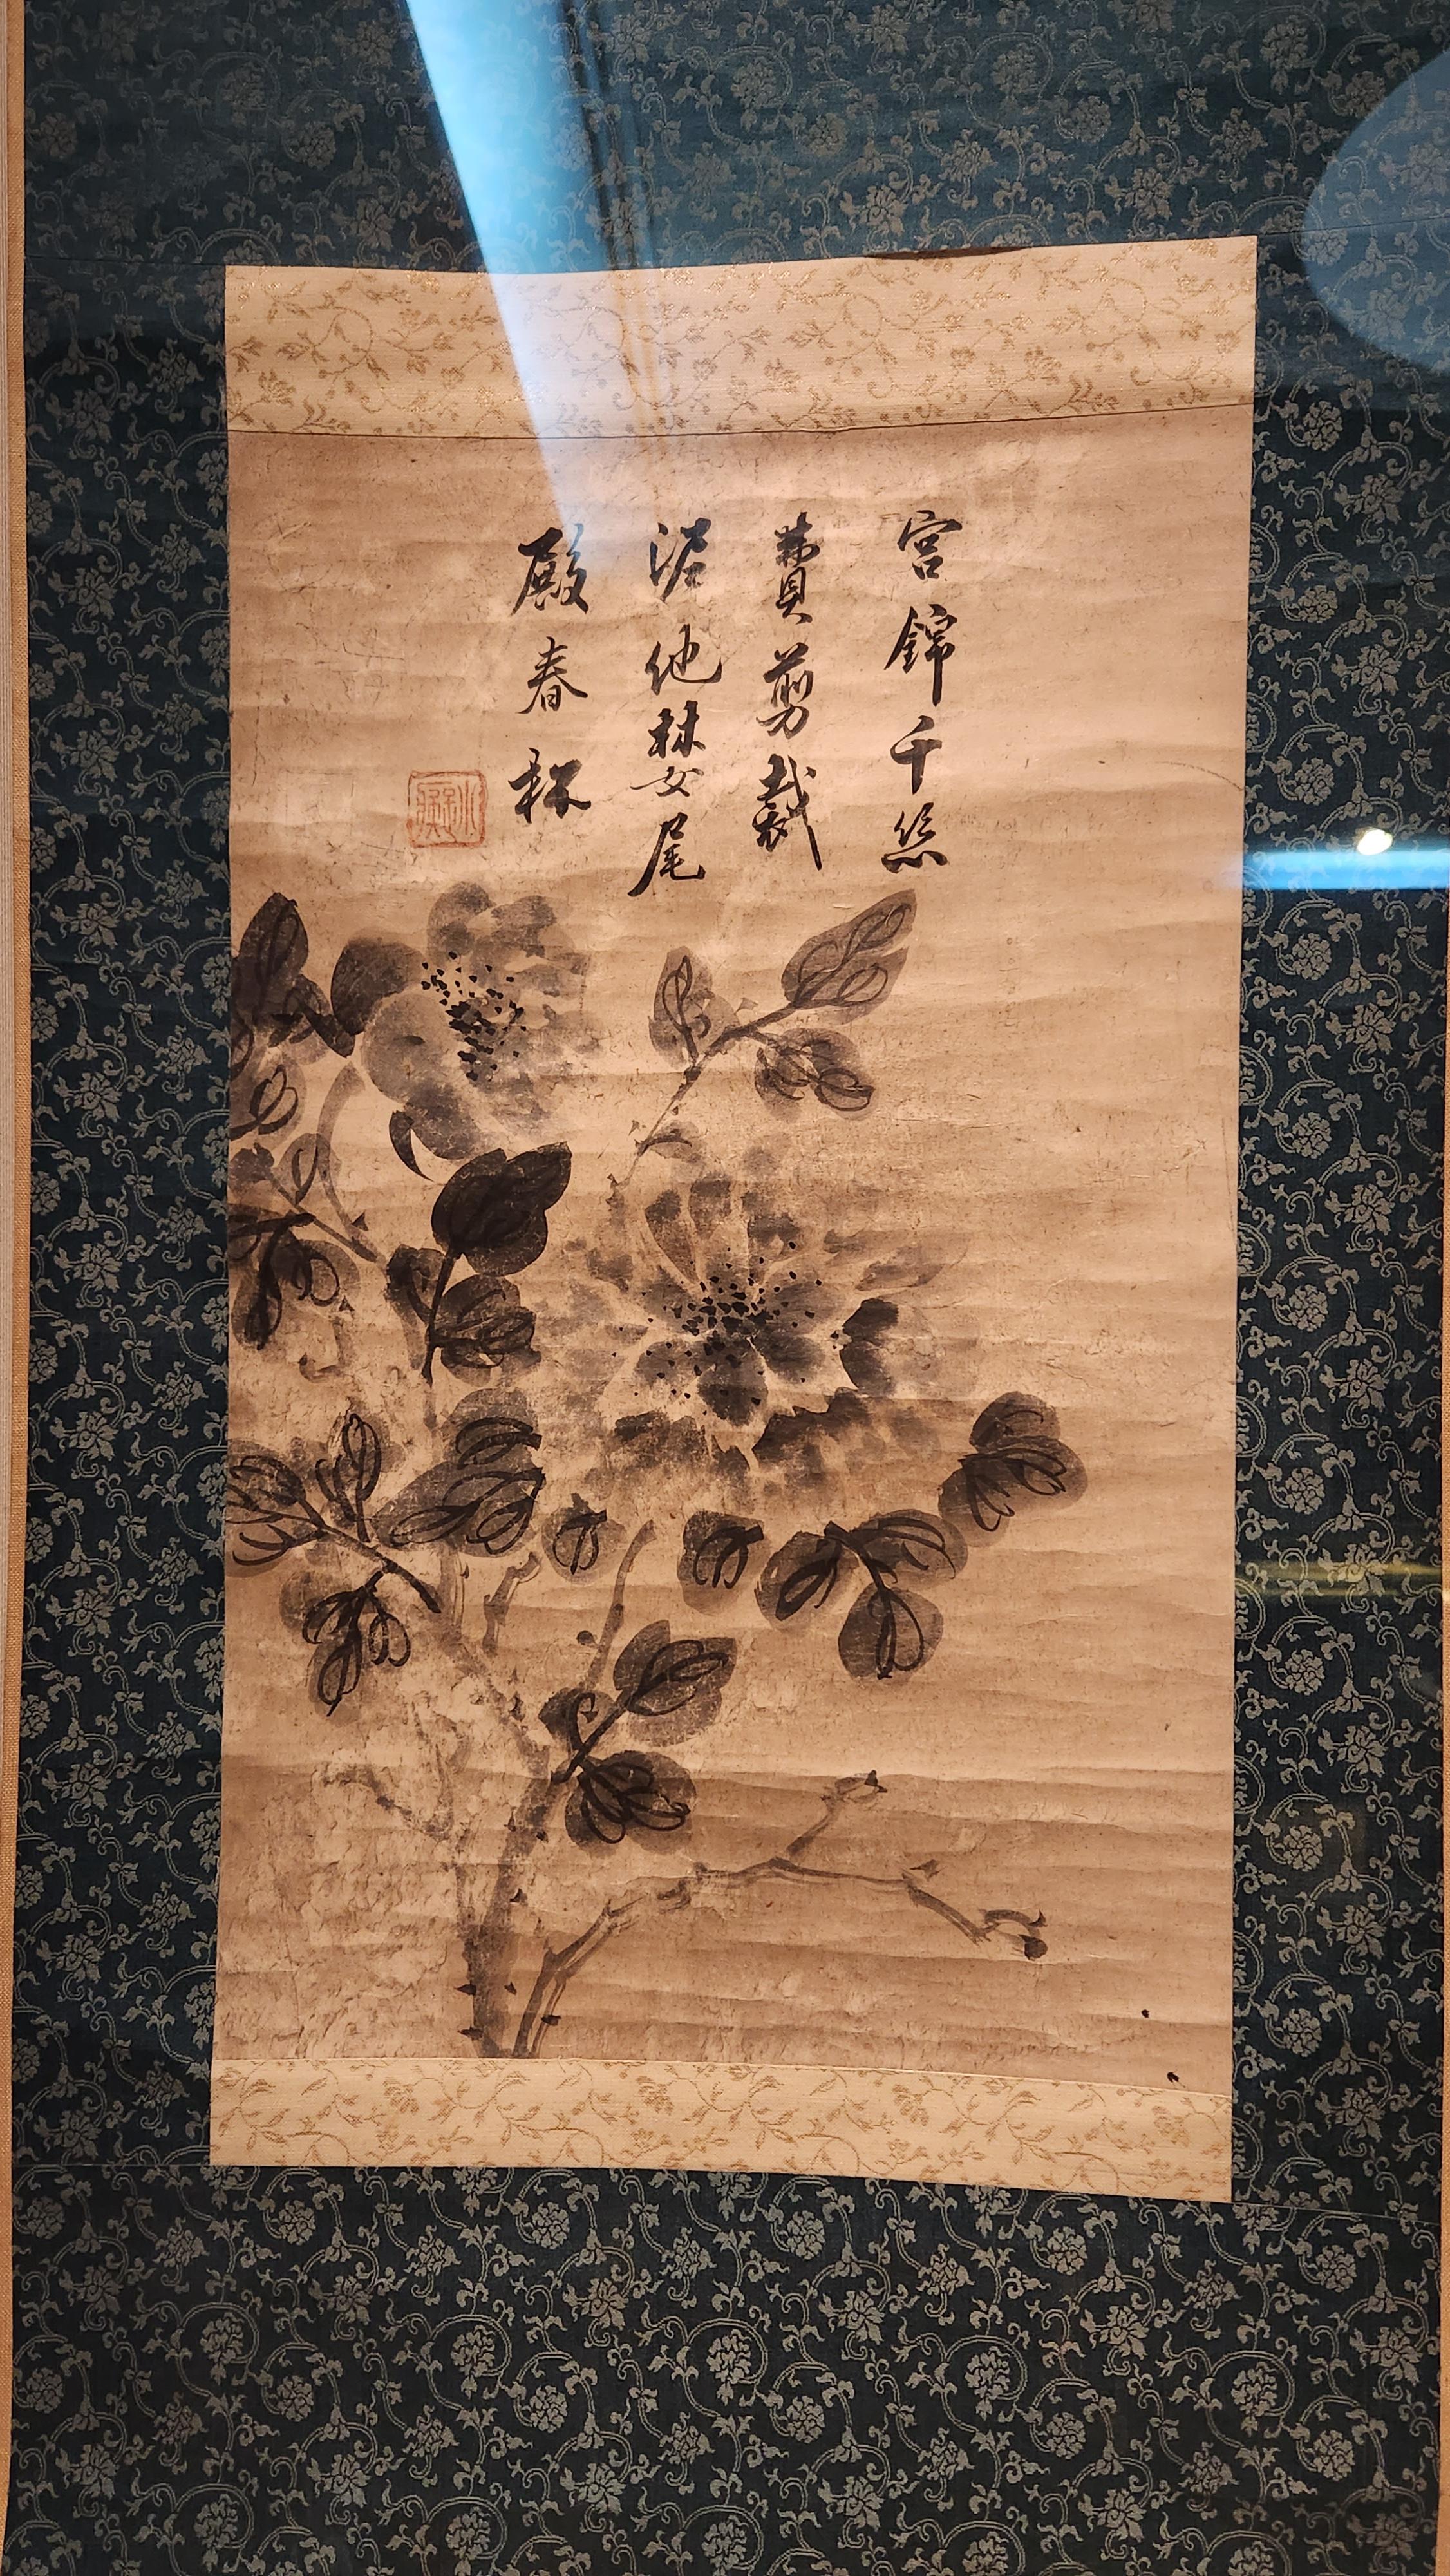 宮錦千絲
費剪裁
泥他婪尾
殿春杯